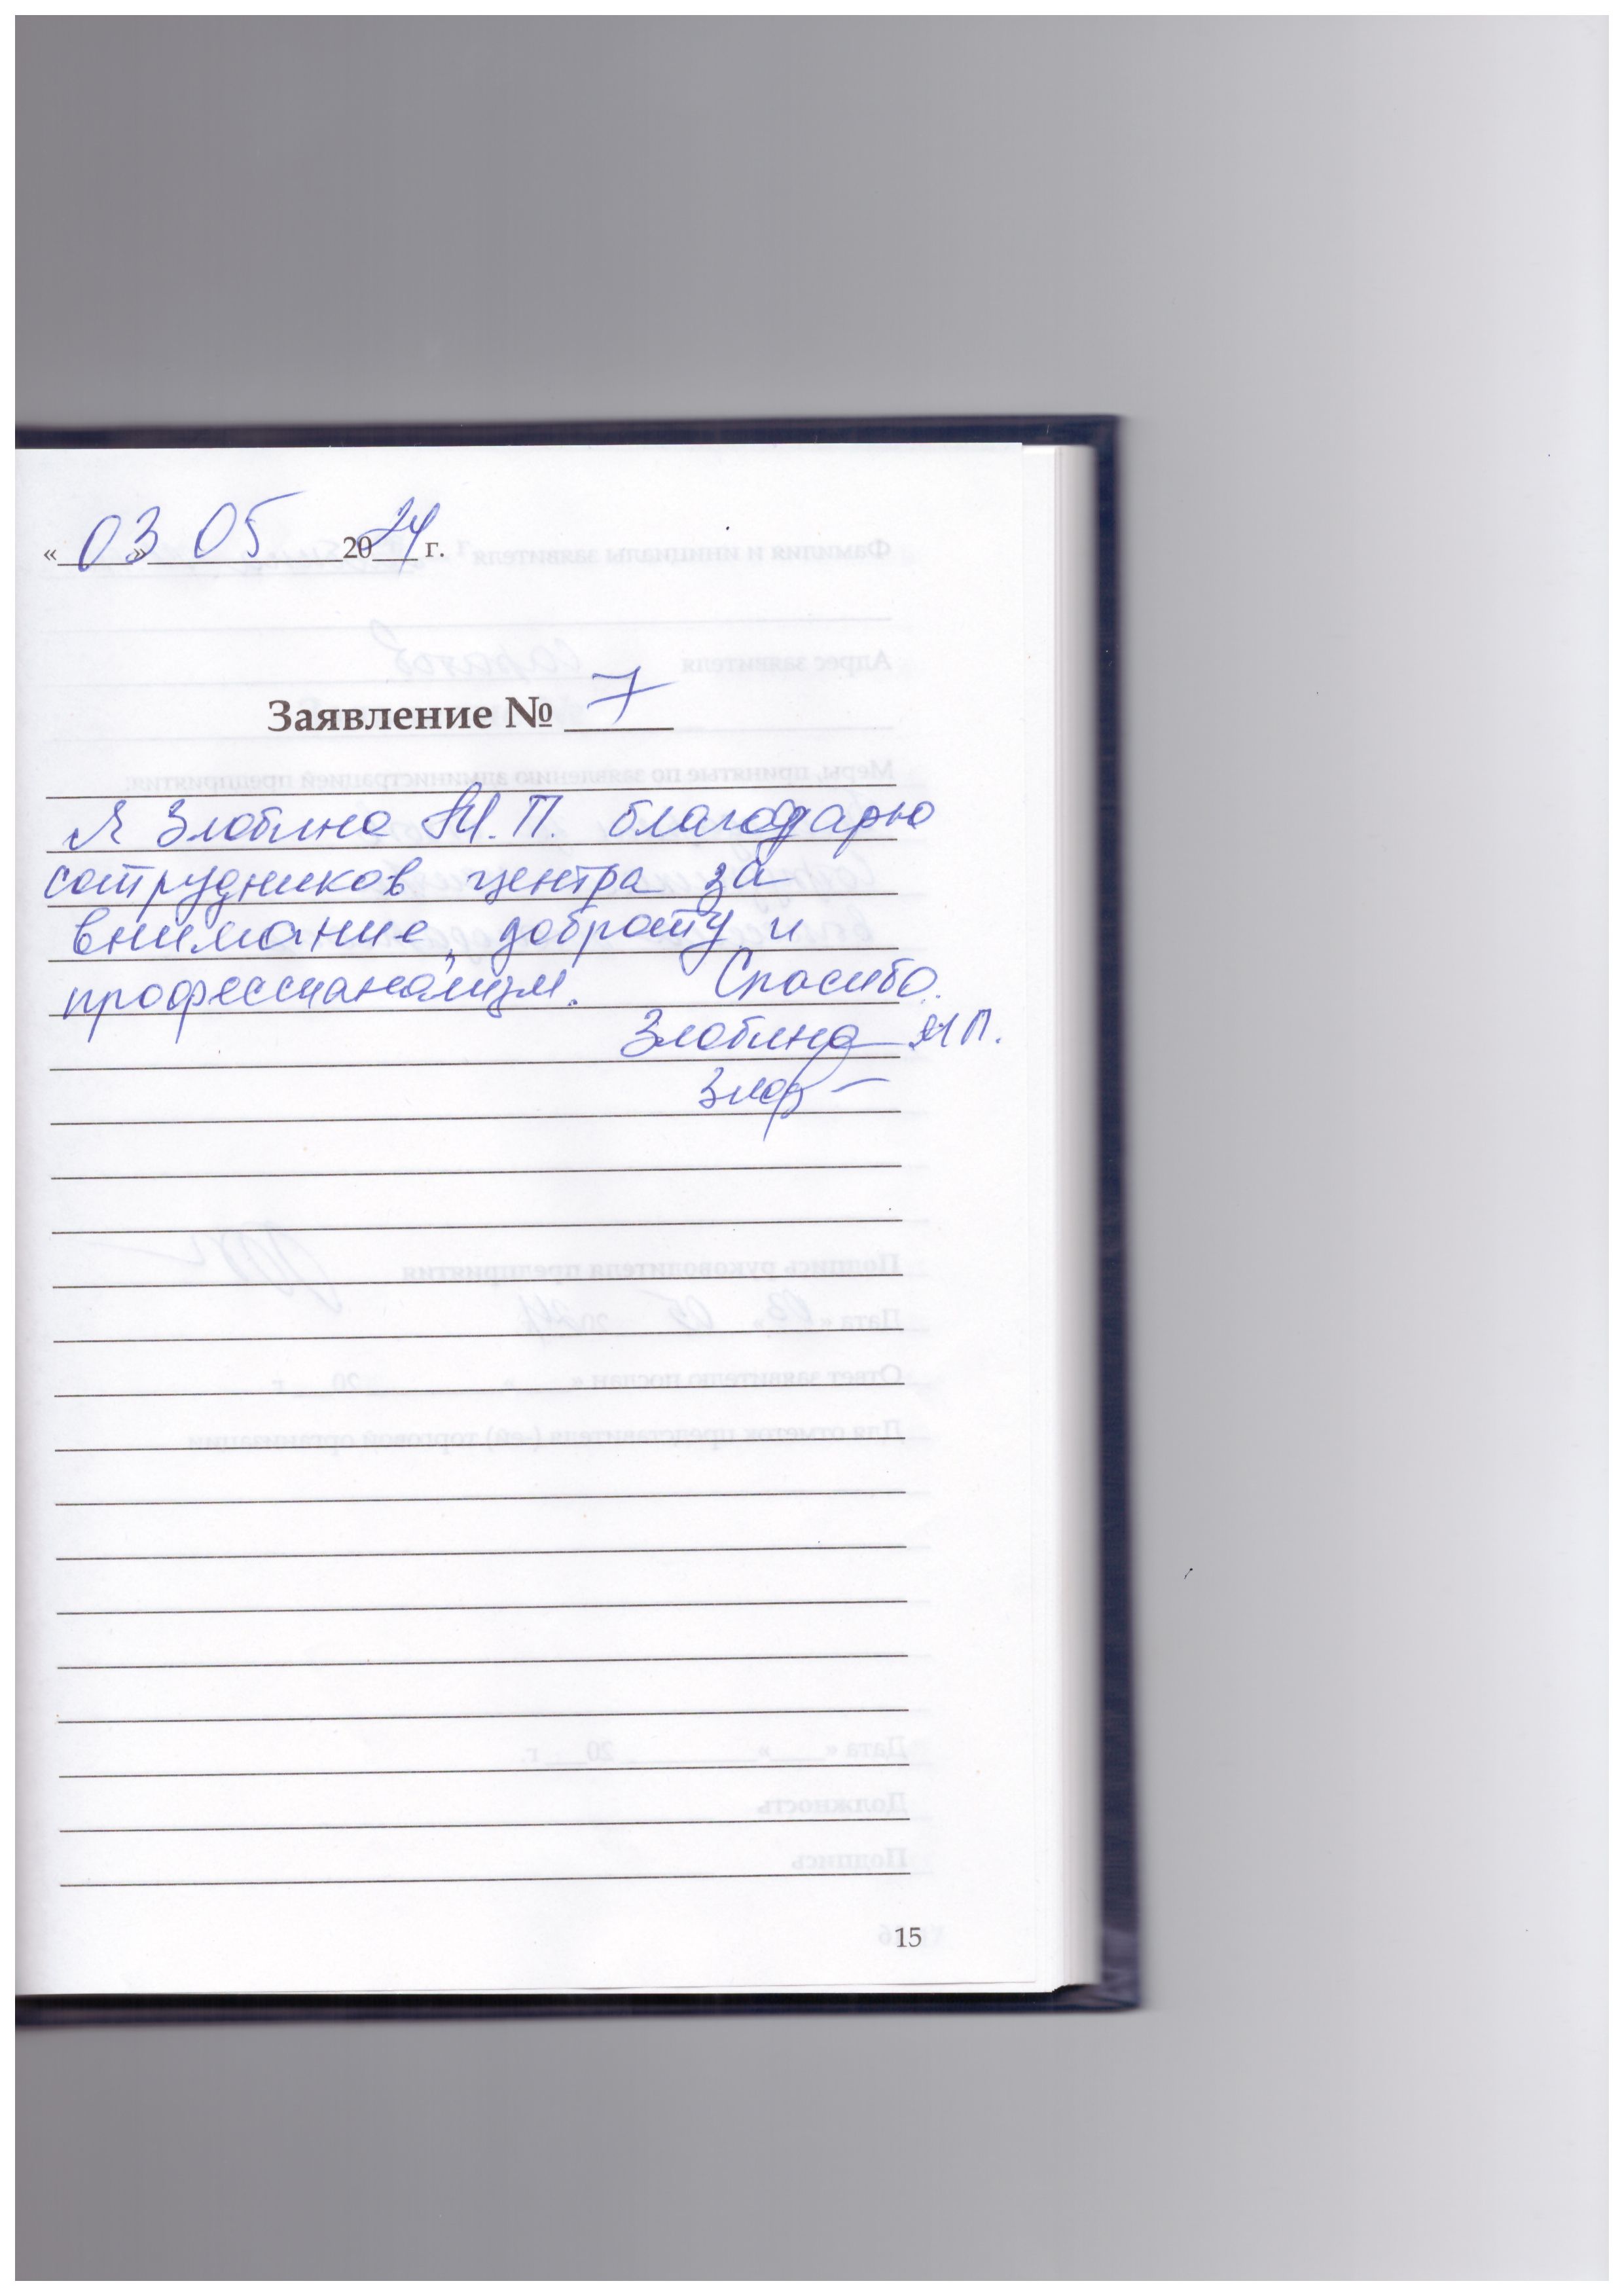 «03» 05 2024 г.
Заявление № 7
Я Злобина М.П. благодарю
сотрудников центра за
внимание, доброту и
профессианализм. Спасибо.
Злобина М П.